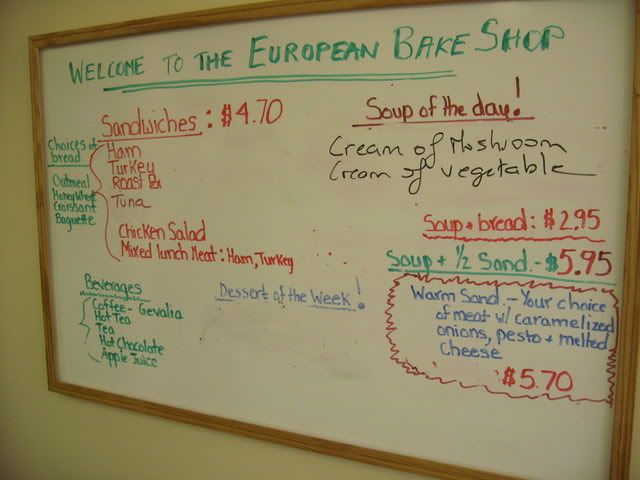 WELCOME TO THE EUROPEAN BAKE SHOP
Sandwiches : $4.70
Choices of
bread
Oatmeal
Honey Wheat
Croissant
Baguette
Ham
Turkey
Roast
Tuna
Chicken Salad
Mixed lunch Meat : Ham, Turkey
Beverages
Coffee - Gevalia
Hot Tea
Tea
Hot Chocolate
Apple Juice
Dessert of the Week!
Soup of the day!
Cream of Moshroom
Cream of vegetable
Soup + bread : $2.95
Soup + 1/2 Sand. - $5.95
Warm Sand. - Your choice
of meat w/ caramelized
onions, pesto + melted
Cheese
$5.70